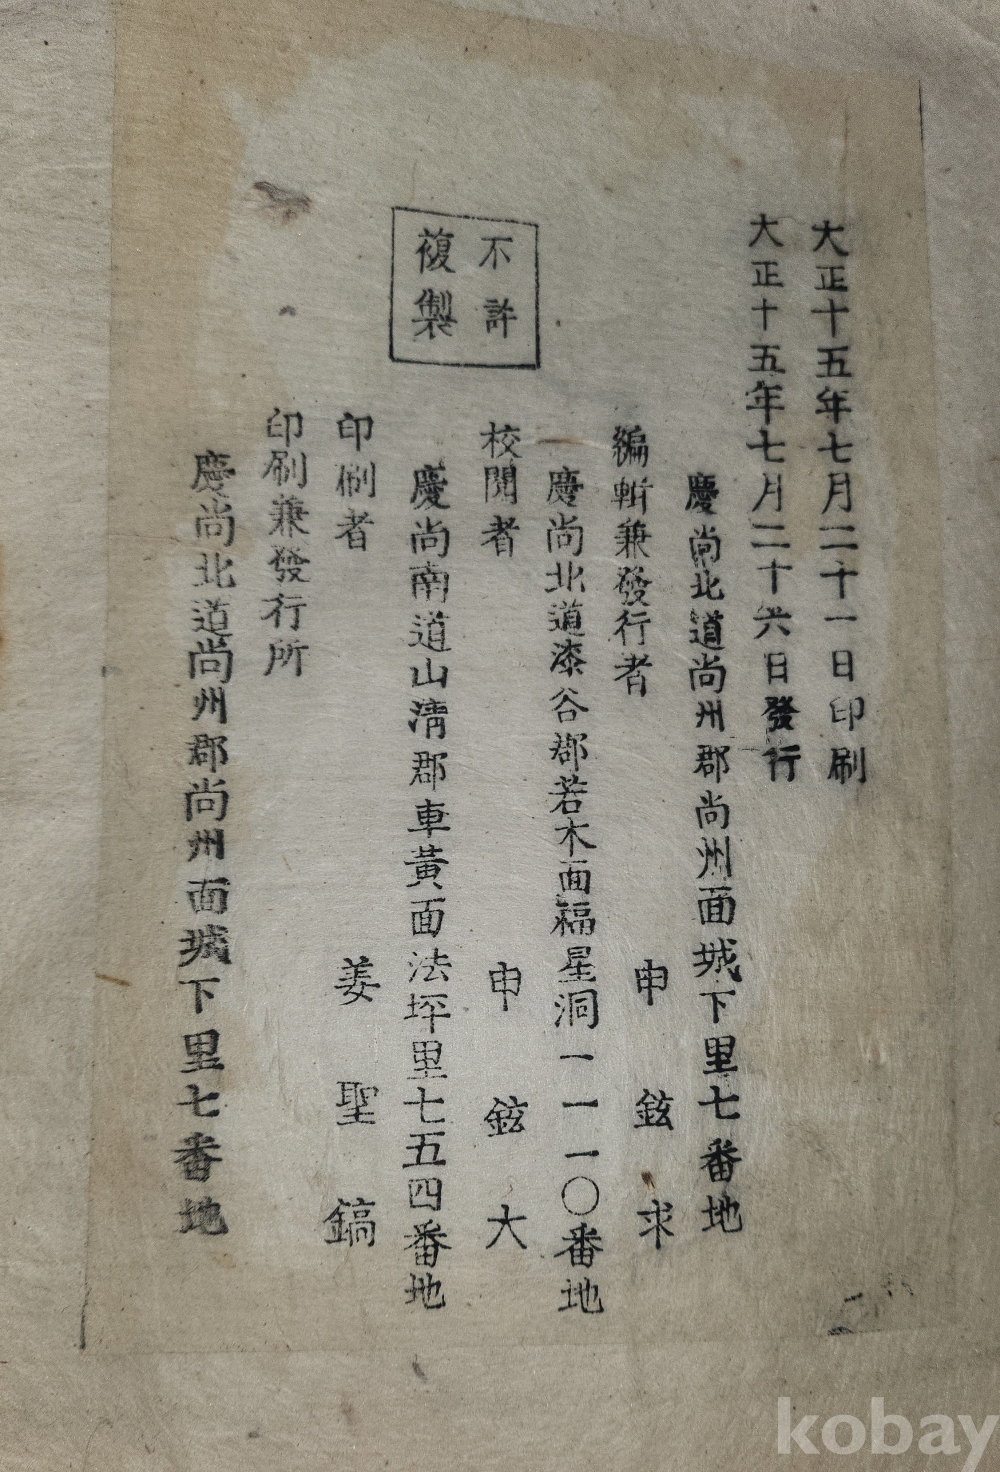 大正十五年七月二十一日印刷
大正十五年七月二十六日發行
慶尙北道尙州郡尙州面城下里七番地
編輯兼發行者 申鉉求
慶尙北道漆谷郡若木面福星洞一一一〇番地
校閱者 申鉉大
慶尙南道山淸郡車黃面法坪里七五四番地
印刷者 姜聖鎬
印刷兼發行所
慶尙北道尙州郡尙州面城下里七番地
不許
複製
kobay